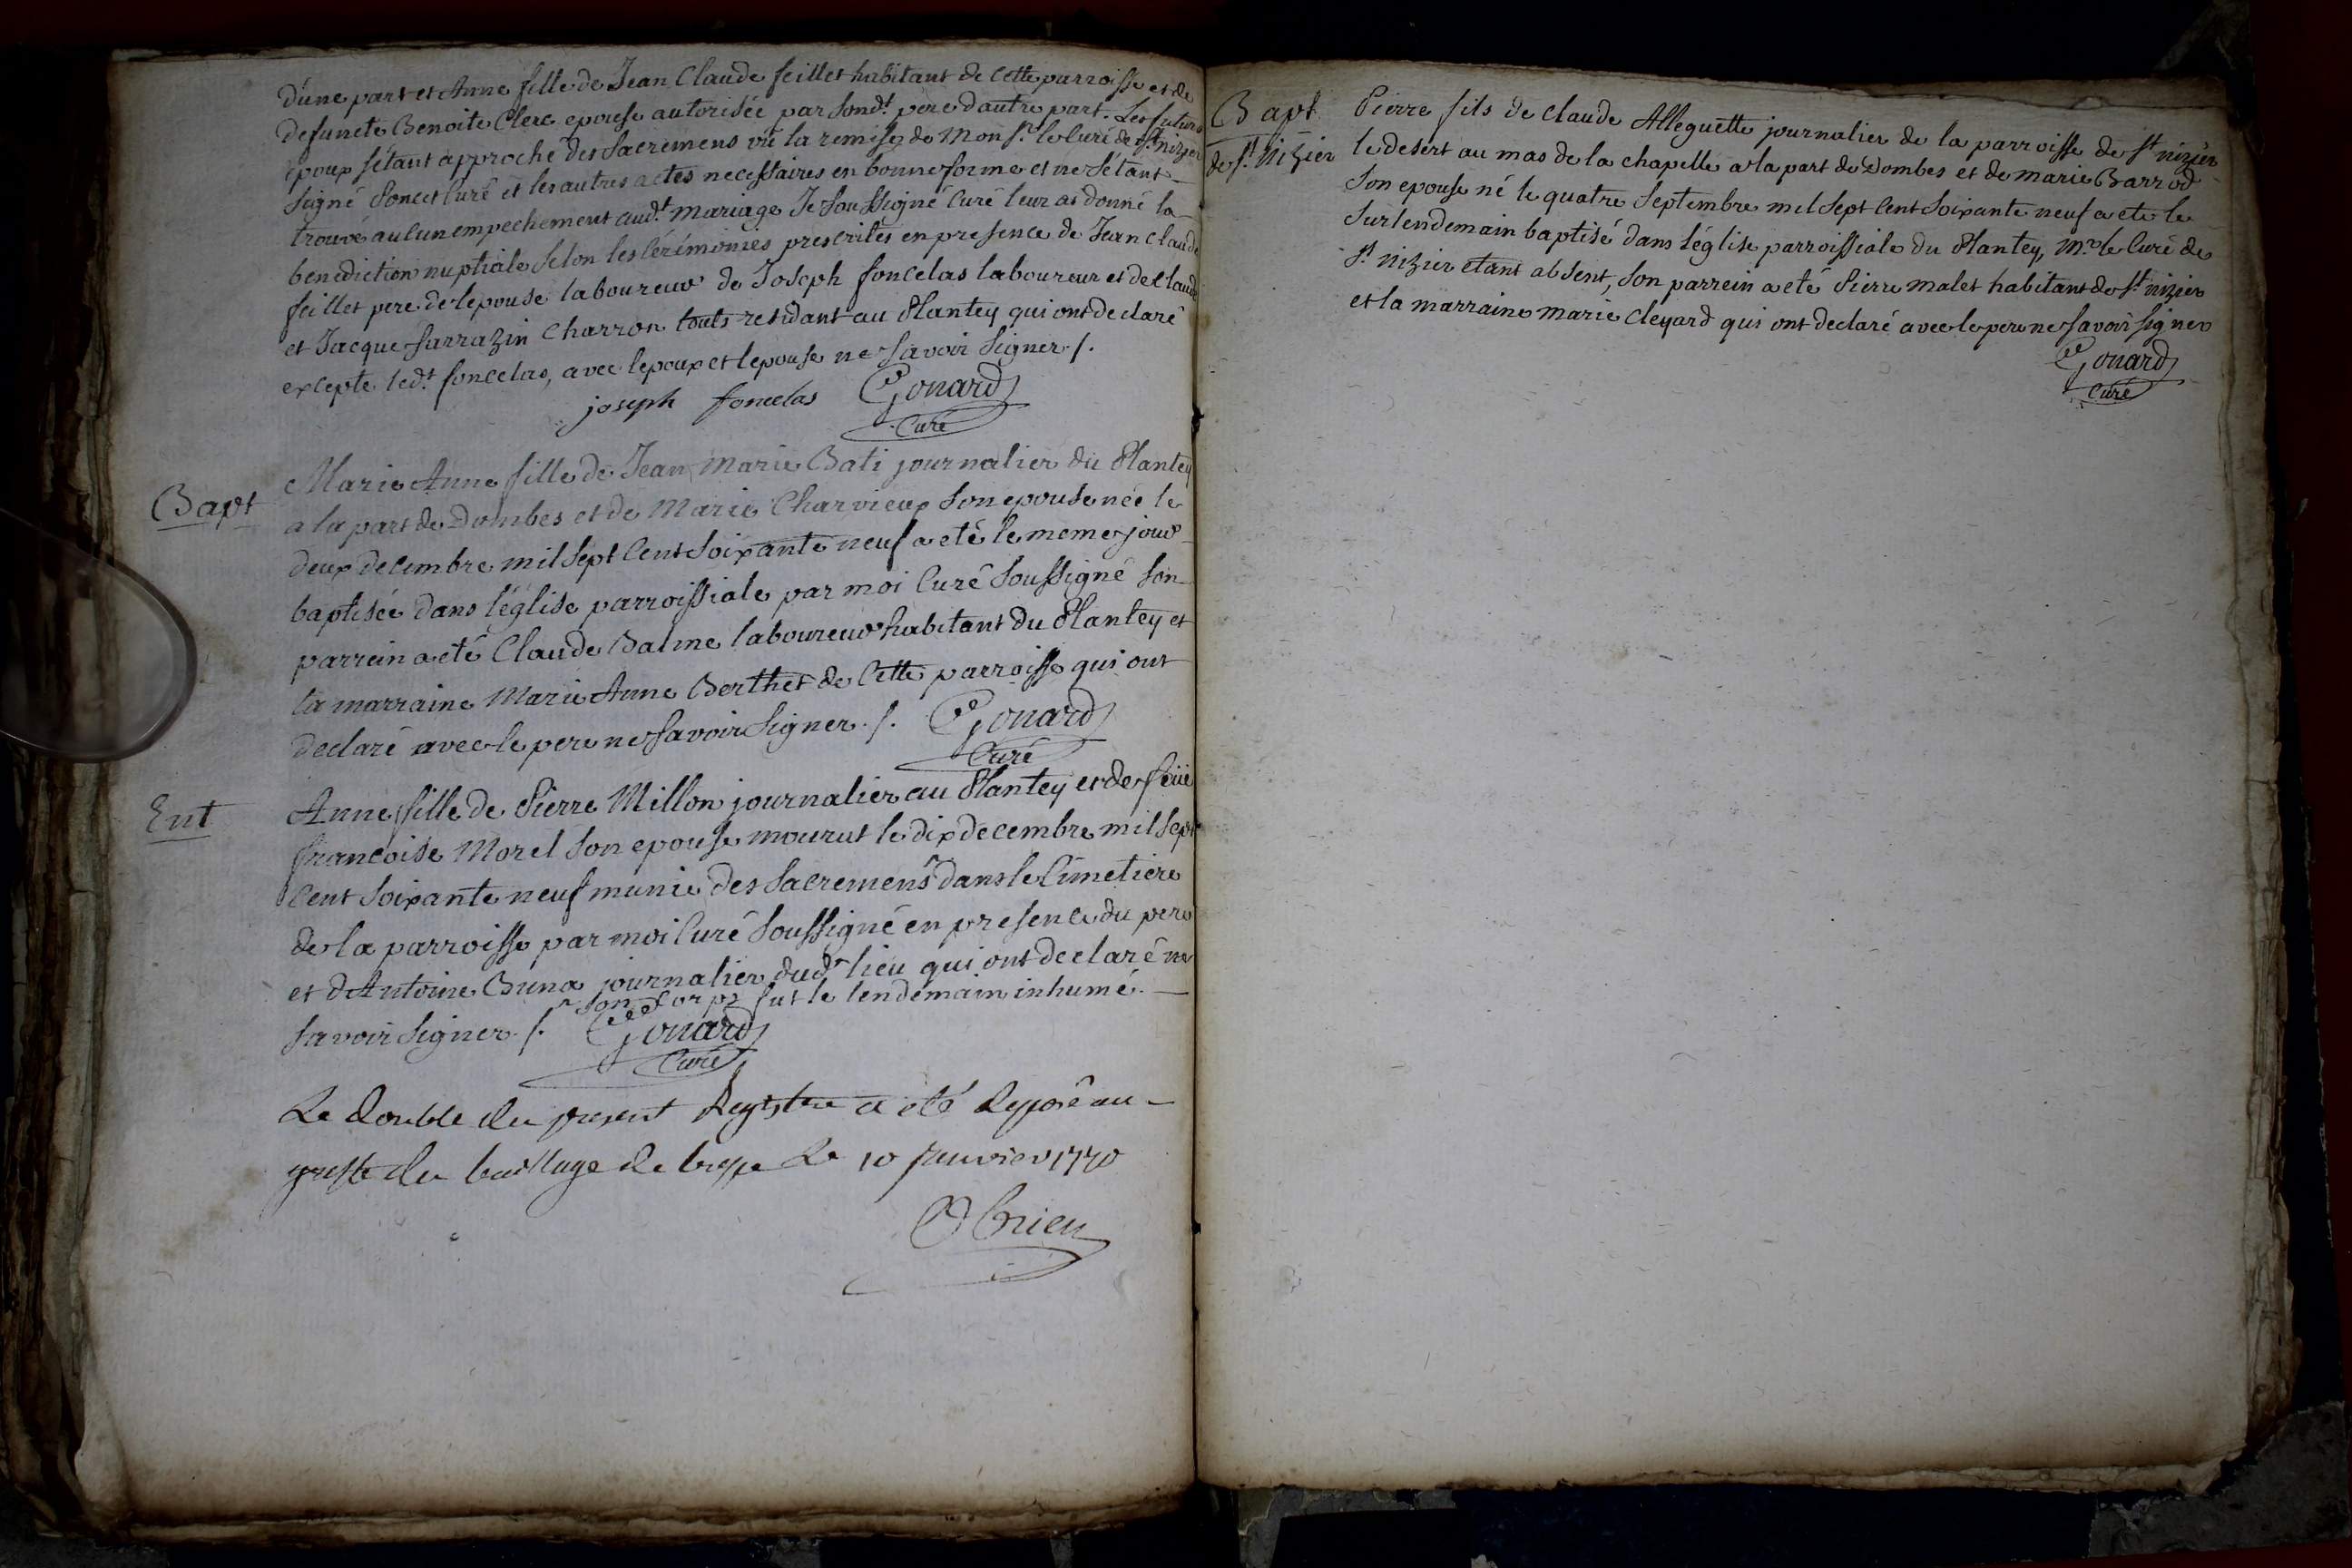 d'une part et Anne fille de Jean Claude feillet habitant de cette parroisse et de
defuncte Benoite Clerc epouse autorisée par sond.t pere d'autre part. Les futurs
epoux s'étant approché des Sacremens vû la remise de Mons.r le Curé de S.t nizier
signé Poncet Curé et les autres actes necessaires en bonne forme et ne s'étant
trouvé aucun empechement aud.t mariage Je soussigné Curé leur ai donné la
benediction nuptiale selon les cérémonies prescrites en presence de Jean Claude
feillet pere de l'epouse laboureur de Joseph foncelas laboureur et de Claude
et Jacque Sarrazin Charron touts residant au Plantey qui ont declaré
excepte led.t foncelas, avec l'epoux et l'epouse ne savoir signer /.
joseph foncelas Gonard
Curé
Bapt
Marie Anne fille de Jean Marie Bati journalier du Plantey
a la part de Dombes et de Marie Charvieux son epouse née le
deux decembre mil sept cent soixante neuf a eté le meme jour
baptisée dans l'église parroissiale par moi Curé soussigné son
parrein a eté Claude Balme laboureur habitant du Plantey et
la marraine Marie Anne Berthet de cette parroisse qui ont
declaré avec le pere ne savoir signer /. Gonard
Curé
Ent
Anne fille de Pierre Millon journalier au Plantey et de feüe
francoise Morel son epouse mourut le dix decembre mil sept
cent soixante neuf munie des sacremens dans le Cimetiere
de la parroisse par moi Curé soussigné en presence du pere
et d'Antoine Buna journalier dud.t lieu qui ont declaré ne
son Corps fut le lendemain inhumé.
savoir signer /. Gonard
Curé
Le double du present Registre a été deposé au
greffe du bailliage de bresse Le 10 Janvier 1770
Bapt
de S.t Nizier
Pierre fils de Claude Alleguette journalier de la parroisse de S.t nizier
le desert au mas de la chapelle a la part de Dombes et de marie Barrod
son epouse né le quatre septembre mil sept cent soixante neuf a eté le
surlendemain baptisé dans l'église parroissiale du Plantey, M.r le Curé de
S.t nizier etant absent, son parrein a eté Pierre malet habitant de S.t nizier
et la marraine marie cleyard qui ont declaré avec le pere ne savoir signer
Gonard
Curé